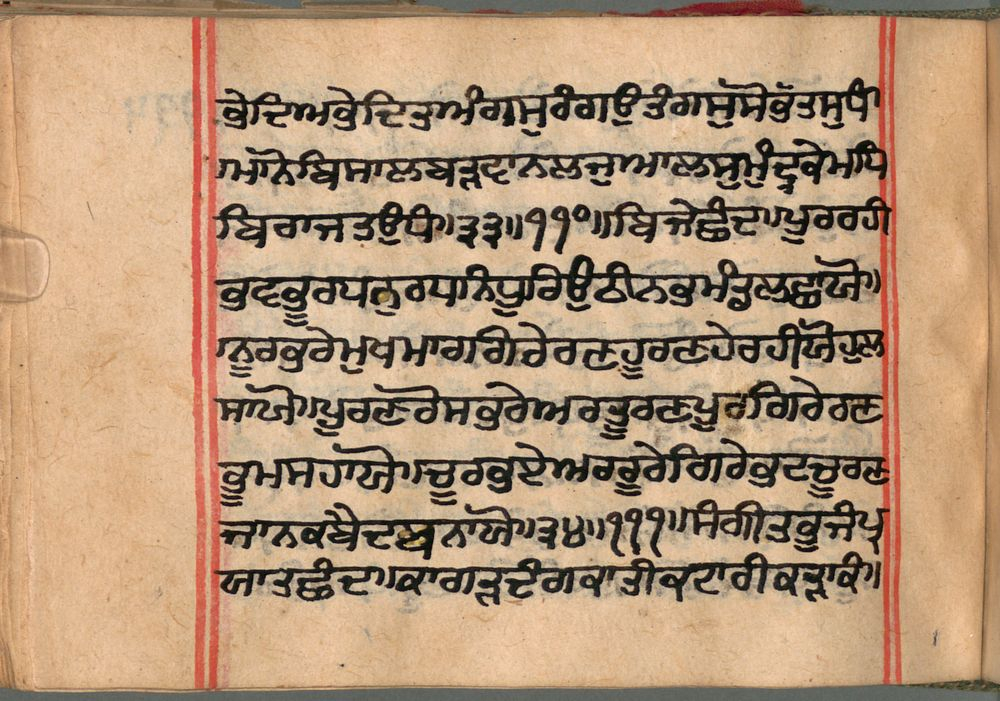 ਭੇਦਿਅਭੇਦਿਤੁਅੰਗਸੁਰੰਗਉਤੰਗਸੁਸੋਭੰਤਸੁਧਿ
ਮਾਨੋਬਿਸਾਲਬੜਵਾਨਲਜੁਆਲਸੁਮੁੰਦ੍ਰਕੇਮਧਿ
ਬਿਰਾਜਤਉਧਿ॥੩੩॥੧੧੦॥ਬਿਜੇਛੰਦ॥ਪੁਰਰਹੀ
ਭੁਵਭੂਰਧਨੁਰਧੁਨਿਧੂਰਿਉਠੀਨਭਮੰਡਲਛਾਯੋ॥
ਨੂਰਭਰੇਮੁਖਮਾਰਗਿਰੇਰਣਹੂਰਣਹੇਰਹੀਯੋਹੁਲ
ਸਾਯੋ॥ਪੂਰਣਰੋਸਭਰੇਅਰਤੂਰਣਪੂਰਗਿਰੇਰਣ
ਭੂਮਸਹਾਯੋ॥ਚੂਰਭਏਅਰਰੂਰੇਗਿਰੇਭਟਚੂਰਣ
ਜਾਨਕਬੈਦਬਨਾਯੋ॥੩੪॥੧੧੧॥ਸੰਗੀਤਭੁਜੰਪ੍ਰ
ਯਾਤਛੰਦ॥ਕਾਗੜਦੰਗਕਾਤੀਕਟਾਰੀਕੜਾਕੰ॥